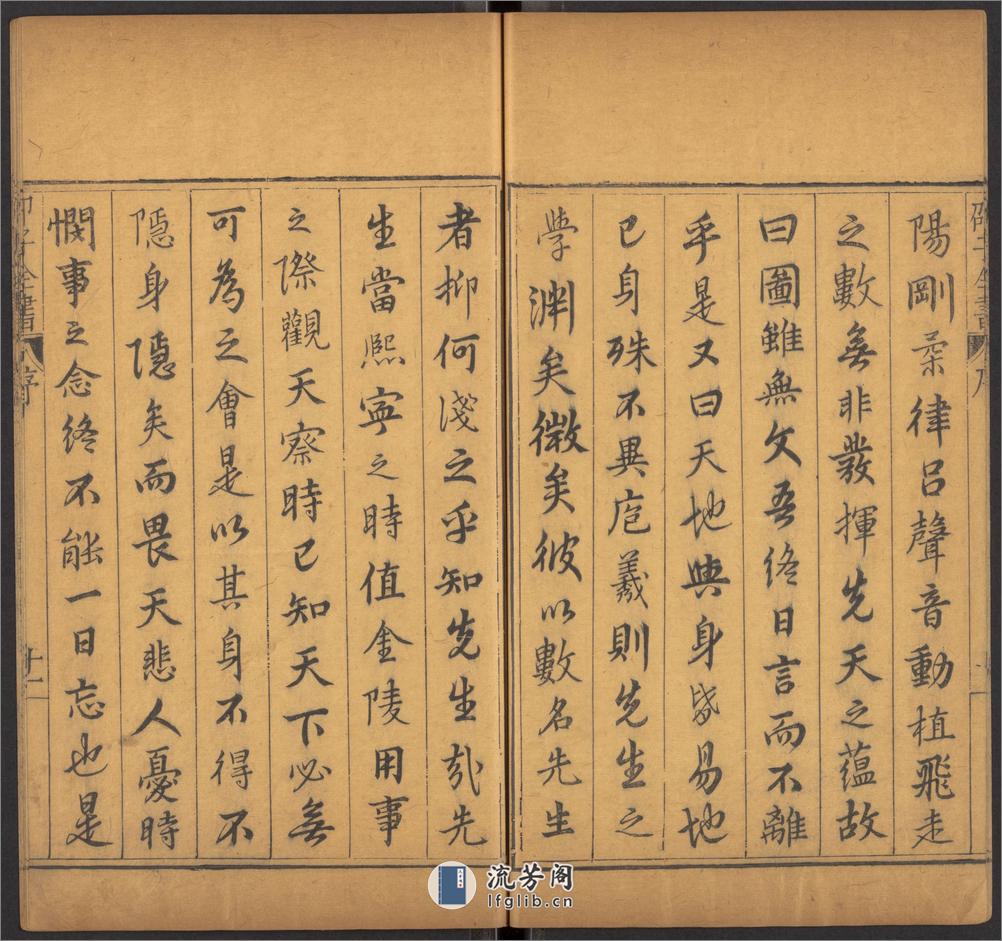 陽剛柔律呂聲音動植飛走
之數無非發揮先天之蘊故
曰圖雖無文吾終日言而不離
乎是又曰天地與身皆易地
已身殊不異庖羲則先生之
學淵矣微矣彼以數名先生
者抑何淺之乎知先生哉先
生當熙寧之時值金陵用事
之際觀天察時已知天下必無
可為之會是以其身不得不
隱身隱矣而畏天悲人憂時
憫事之念終不能一日忘也是
邵子全書
序
邵子全書
序
十二
流芳阁
lfglib.cn